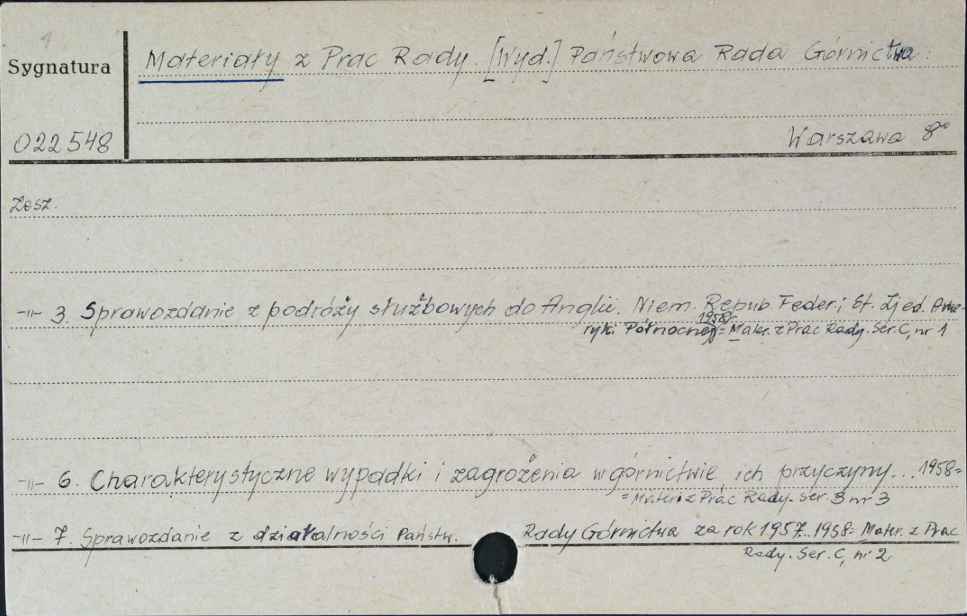 Sygnatura
Materiały z Prac Rady. [Wyd.] Państwowa Rada Górnictwa.
022548
Warszawa 8°
Zesz.
-"- 3. Sprawozdanie z podróży służbowych do Anglii. Niem. Repub Feder. i St. Zjed. Ame-
ryki Północnej 1958 = Mater. z Prac Rady. Ser. C, nr 1
-"- 6. Charakterystyczne wypadki i zagrożenia w górnictwie, ich przyczyny... 1958=
= Mater. z Prac Rady. Ser B nr 3
-"- 7. Sprawozdanie z działalności Państw. Rady Górnictwa za rok 1957. 1958= Mater. z Prac
Rady. Ser. C, nr 2